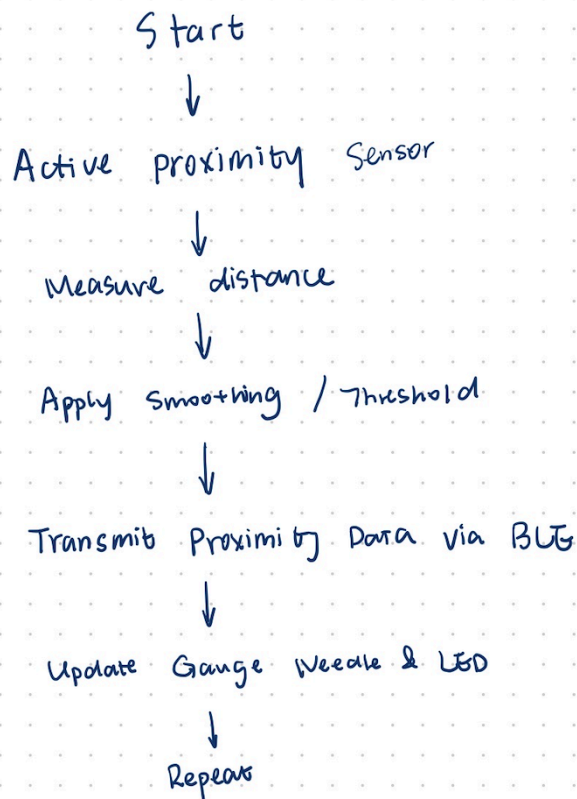 Start
Active proximity Sensor
Measure distance
Apply Smoothing / Threshold
Transmit Proximity Data via BLE
Update Gauge Needle & LED
Repeat